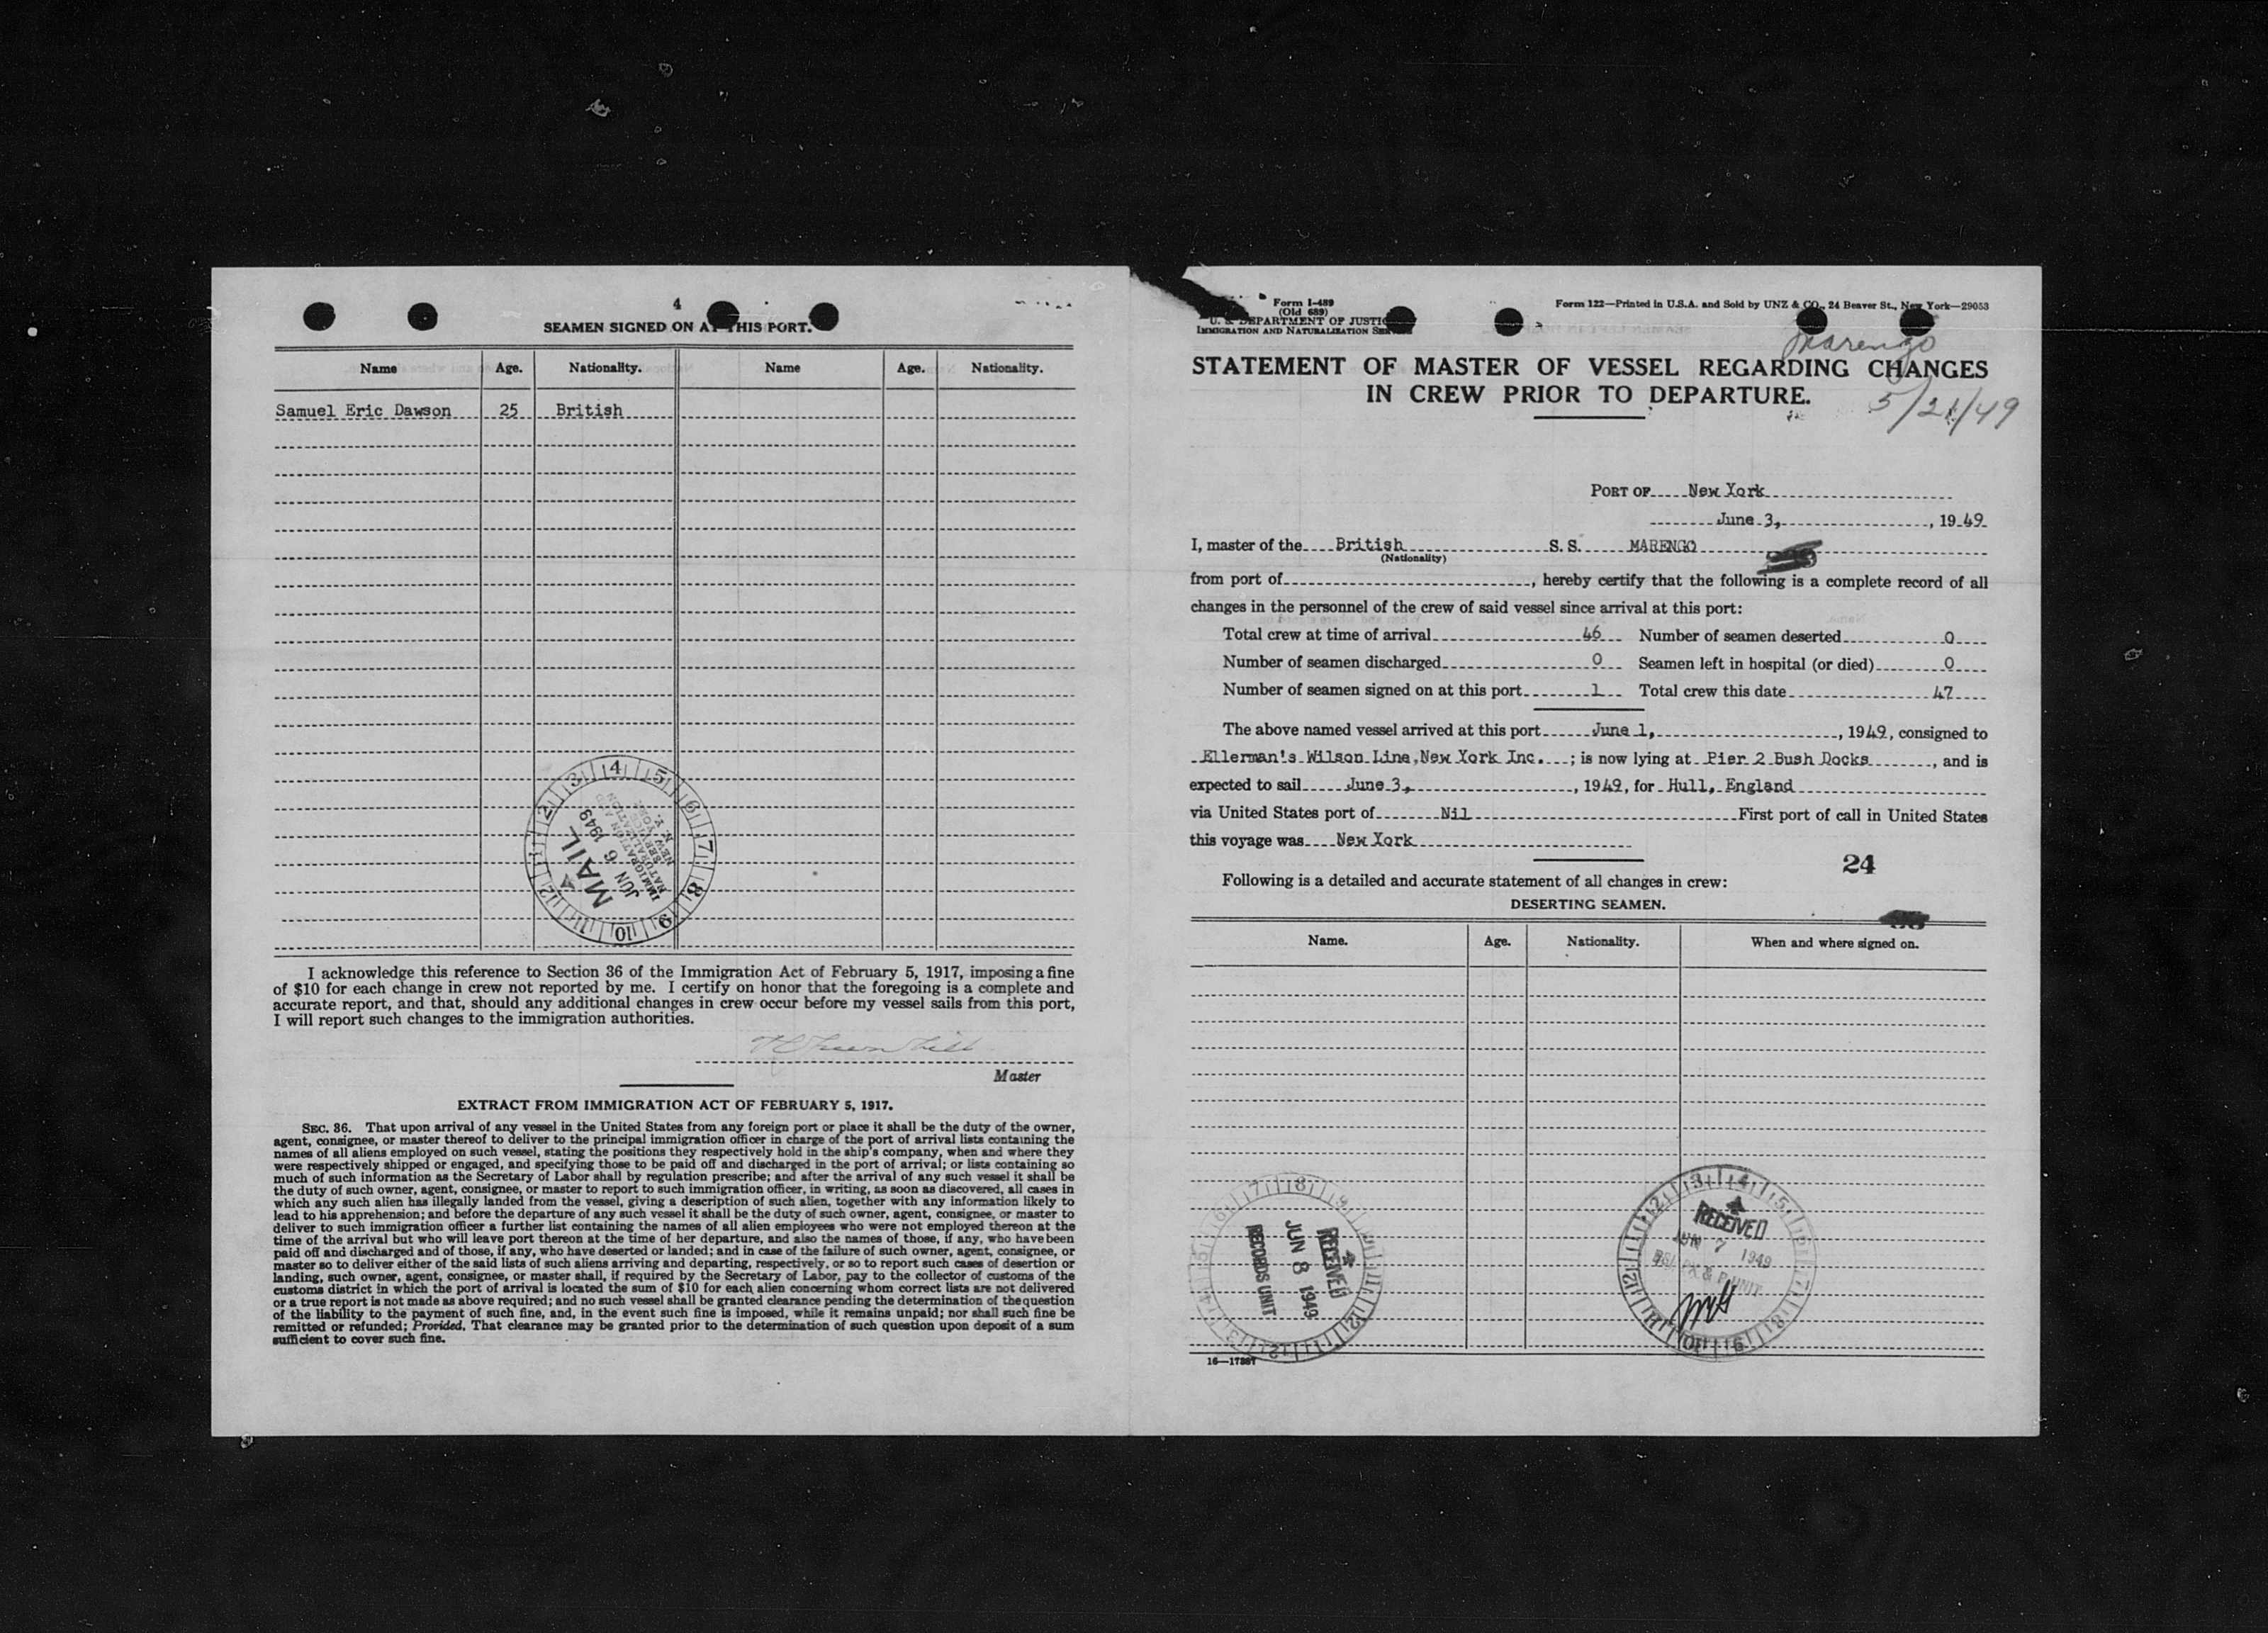 4
SEAMEN SIGNED ON AT THIS PORT.
Name Age. Nationality. Name Age. Nationality.
Samuel Eric Dawson 25 British
MAIL
JUN 6 1949
IMMIGRATION AND
NATURALIZATION
SERVICE
NEW YORK
N. Y.
I acknowledge this reference to Section 36 of the Immigration Act of February 5, 1917, imposing a fine
of $10 for each change in crew not reported by me. I certify on honor that the foregoing is a complete and
accurate report, and that, should any additional changes in crew occur before my vessel sails from this port,
I will report such changes to the immigration authorities.
Master
EXTRACT FROM IMMIGRATION ACT OF FEBRUARY 5, 1917.
SEC. 36. That upon arrival of any vessel in the United States from any foreign port or place it shall be the duty of the owner,
agent, consignee, or master thereof to deliver to the principal immigration officer in charge of the port of arrival lists containing the
names of all aliens employed on such vessel, stating the positions they respectively hold in the ship's company, when and where they
were respectively shipped or engaged, and specifying those to be paid off and discharged in the port of arrival; or lists containing so
much of such information as the Secretary of Labor shall by regulation prescribe; and after the arrival of any such vessel it shall be
the duty of such owner, agent, consignee, or master to report to such immigration officer, in writing, as soon as discovered, all cases in
which any such alien has illegally landed from the vessel, giving a description of such alien, together with any information likely to
lead to his apprehension; and before the departure of any such vessel it shall be the duty of such owner, agent, consignee, or master to
deliver to such immigration officer a further list containing the names of all alien employees who were not employed thereon at the
time of the arrival but who will leave port thereon at the time of her departure, and also the names of those, if any, who have been
paid off and discharged and of those, if any, who have deserted or landed; and in case of the failure of such owner, agent, consignee, or
master so to deliver either of the said lists of such aliens arriving and departing, respectively, or so to report such cases of desertion or
landing, such owner, agent, consignee, or master shall, if required by the Secretary of Labor, pay to the collector of customs of the
customs district in which the port of arrival is located the sum of $10 for each alien concerning whom correct lists are not delivered
or a true report is not made as above required; and no such vessel shall be granted clearance pending the determination of the question
of the liability to the payment of such fine, and, in the event such fine is imposed, while it remains unpaid; nor shall such fine be
remitted or refunded; Provided, That clearance may be granted prior to the determination of such question upon deposit of a sum
sufficient to cover such fine.
Form I-489
(Old 689)
U. S. DEPARTMENT OF JUSTICE
IMMIGRATION AND NATURALIZATION SERVICE
Form 122—Printed in U.S.A. and Sold by UNZ & CO., 24 Beaver St., New York—29053
Marengo
STATEMENT OF MASTER OF VESSEL REGARDING CHANGES
IN CREW PRIOR TO DEPARTURE.
5/21/49
PORT OF New York
June 3, , 1949
I, master of the British S. S. MARENGO
(Nationality)
from port of , hereby certify that the following is a complete record of all
changes in the personnel of the crew of said vessel since arrival at this port:
Total crew at time of arrival 46 Number of seamen deserted 0
Number of seamen discharged 0 Seamen left in hospital (or died) 0
Number of seamen signed on at this port 1 Total crew this date 47
The above named vessel arrived at this port June 1, , 1949, consigned to
Ellerman's Wilson Line, New York Inc. ; is now lying at Pier 2 Bush Docks , and is
expected to sail June 3, , 1949, for Hull, England
via United States port of Nil First port of call in United States
this voyage was New York
24
Following is a detailed and accurate statement of all changes in crew:
DESERTING SEAMEN.
Name. Age. Nationality. When and where signed on.
RECEIVED
JUN 8 1949
RECORDS UNIT
RECEIVED
JUN 7 1949
UNIT
16—17387